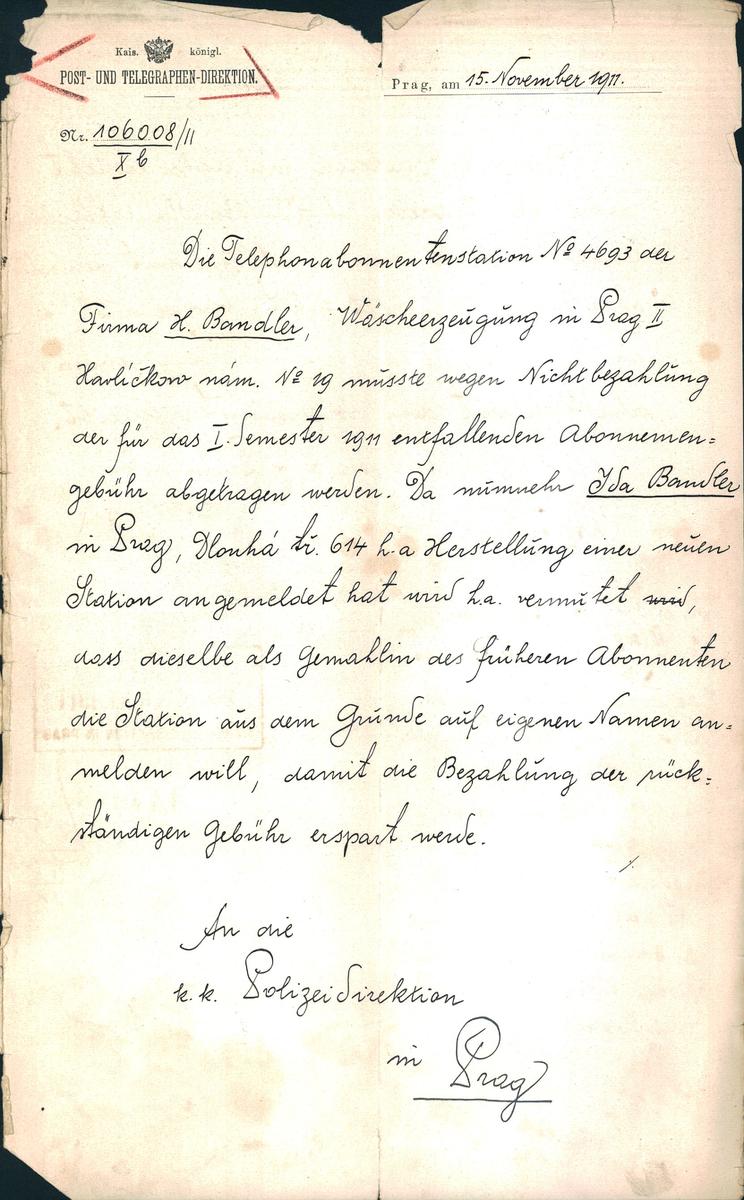 Kais. königl.
POST- UND TELEGRAPHEN-DIREKTION.
Prag, am 15. November 1911.
Nr. 106008/11
X b
Die Telephonabonnentenstation Nº 4693 der
Firma H. Bandler, Wäscheerzeugung in Prag II
Havlíčkovo nám. Nº 19 musste wegen Nichtbezahlung
der für das I. Semester 1911 entfallenden Abonnemen=
gebühr abgetragen werden. Da nunmehr Ida Bandler
in Prag, Dlouhá tř. 614 h.a Herstellung einer neuen
Station angemeldet hat wird h.a. vermutet wird,
dass dieselbe als Gemahlin des früheren Abonnenten
die Station aus dem Grunde auf eigenen Namen an=
melden will, damit die Bezahlung der rück=
ständigen Gebühr erspart werde.
An die
k. k. Polizeidirektion
in Prag